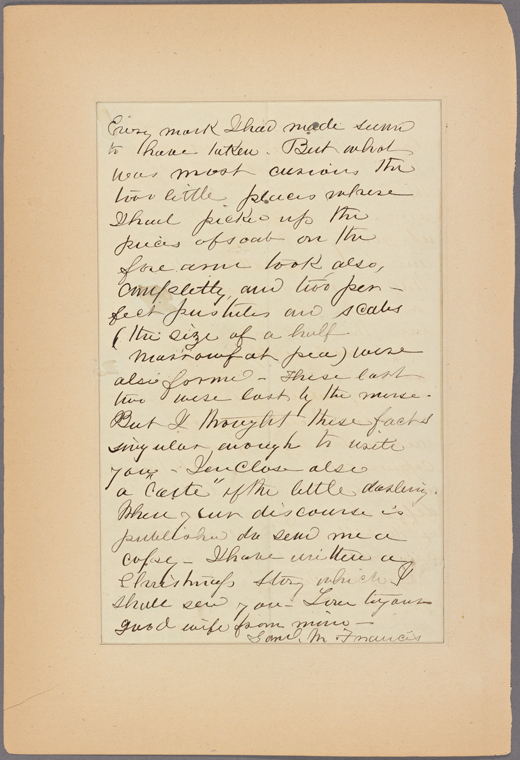 Every mark I had made seem
to have taken. But what
was most curious the
two little places where
I had picked up the
pieces of scab on the
fore arm took also,
completely, and two per-
fect pustules and scabs
(the size of a half
marrowfat pea) were
also formed - These last
two were lost by the nurse.
But I thought these facts
singular enough to write
you - I enclose also
a "carte" of the little darling.
When your discourse is
published do send me a
copy - I have written a
Christmas Story which I
shall send you - Love to your
good wife from mine -
Saml. M. Francis